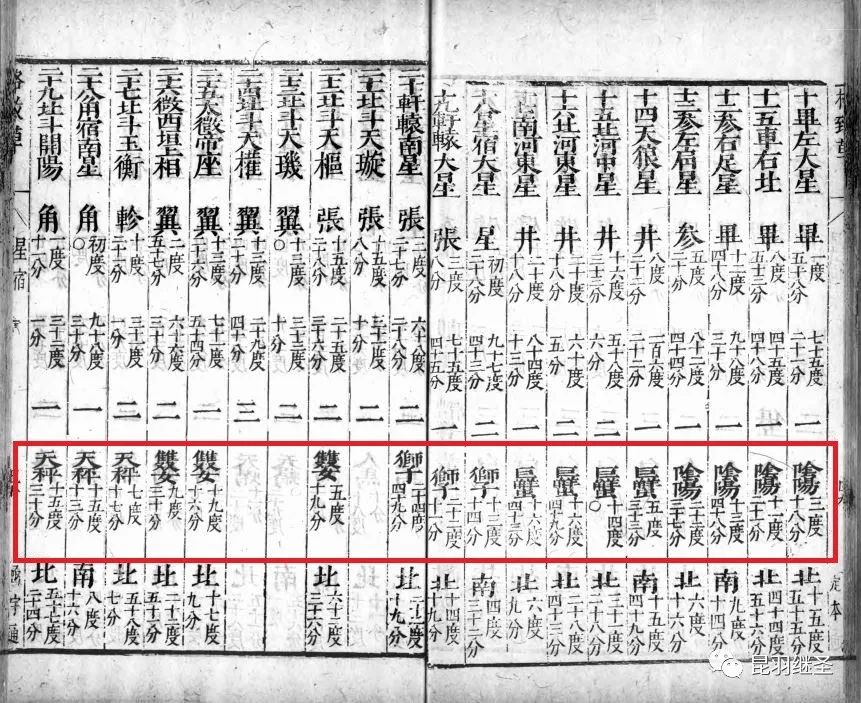 格致草
十畢左大星 畢 一度五十八分 七十五度二十一分 一 陰陽 三度十八分 北 十五度五十五分
十一五車右北 畢 八度五十三分 四十五度四十八分 一 陰陽 十一度二十二分 北 四十四度五十六分
十二參右足星 畢 十二度四十八分 九十八度三十分 一 陰陽 十三度四十八分 南 九度十四分
十三參左肩星 參 五度二十分 八十二度四十四分 一 陰陽 二十二度三十七分 北 六度十六分
十四天狼星 井 八度二十二分 一百六度二十二分 一 巨蟹 五度三十三分 南 十五度四十九分
十五北河中星 井 十六度三十二分 五十八度六分 二 巨蟹 十四度〇 北 二十八度二十八分
十六北河東星 井 二十度五分 六十度十分 二 巨蟹 十六度四十九分 北 二十六度九分
十七南河東星 井 二十度十八分 八十四度十三分 一 巨蟹 十六度四十三分 北 六度九分
十八星宿大星 星 初度二十六分 九十七度四十二分 二 獅子 十三度十四分 南 四度三十二分
十九軒轅大星 張 三度八分 七十五度四十五分 一 獅子 二十二度十一分 北 十四度十九分
二十軒轅南星 張 二度二十七分 六十八度二十八分 二 獅子 二十四度四十九分 北 二十二度十九分
二十一北斗天璇 張 十五度八分 三十二度十分 二
二十二北斗天樞 張 十五度二十八分 二十五度三十六分 二 雙女 五度三十九分 北 六十三度三十六分
二十三北斗天璣 翼 十三度〇 三十度十分 二
二十四北斗天權 翼 十三度三十分 二十九度四十六分 三
二十五太微帝座 翼 十二度二十六分 七十三度五十四分 一 雙女 十九度十六分 北 十七度九分
二十六微西垣上相 翼 二度五十七分 六十六度三十分 二 雙女 九度三十分 北 二十三度十二分
二十七北斗玉衡 軫 十度二十一分 三十二度一分 二 天秤 七度十七分 北 五十八度七分
二十八角宿南星 角 初度〇 九十八度三十分 一 天秤 十五度十三分 南 八度十六分
二十九北斗開陽 角 一度十二分 三十三度一分 二 天秤 十五度三十分 北 五十七度二十四分
格致草
星宿
函宇通
定本
昆羽继圣